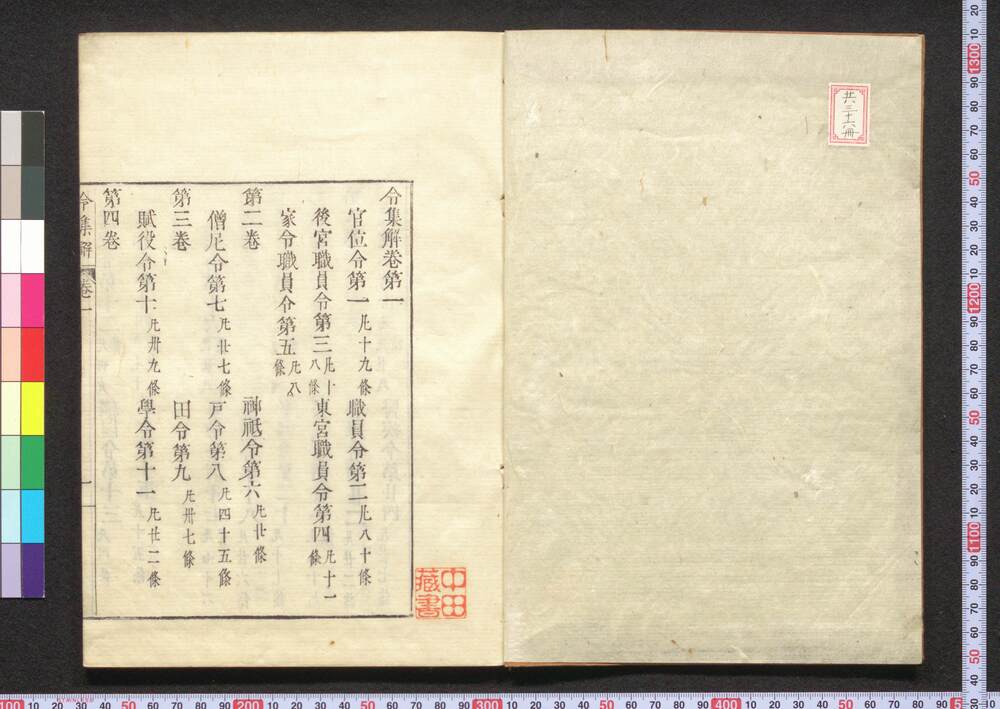 共三十六冊
令集解卷第一
官位令第一 凡十九條 職員令第二 凡八十條
後宮職員令第三 凡十八條 東宮職員令第四 凡十一條
家令職員令第五 凡八條
第二卷 神祇令第六 凡廿條
僧尼令第七 凡廿七條 戸令第八 凡四十五條
第三卷 田令第九 凡卅七條
賦役令第十 凡卅九條 學令第十一 凡廿二條
第四卷
令集解 卷一 一
中田
藏書